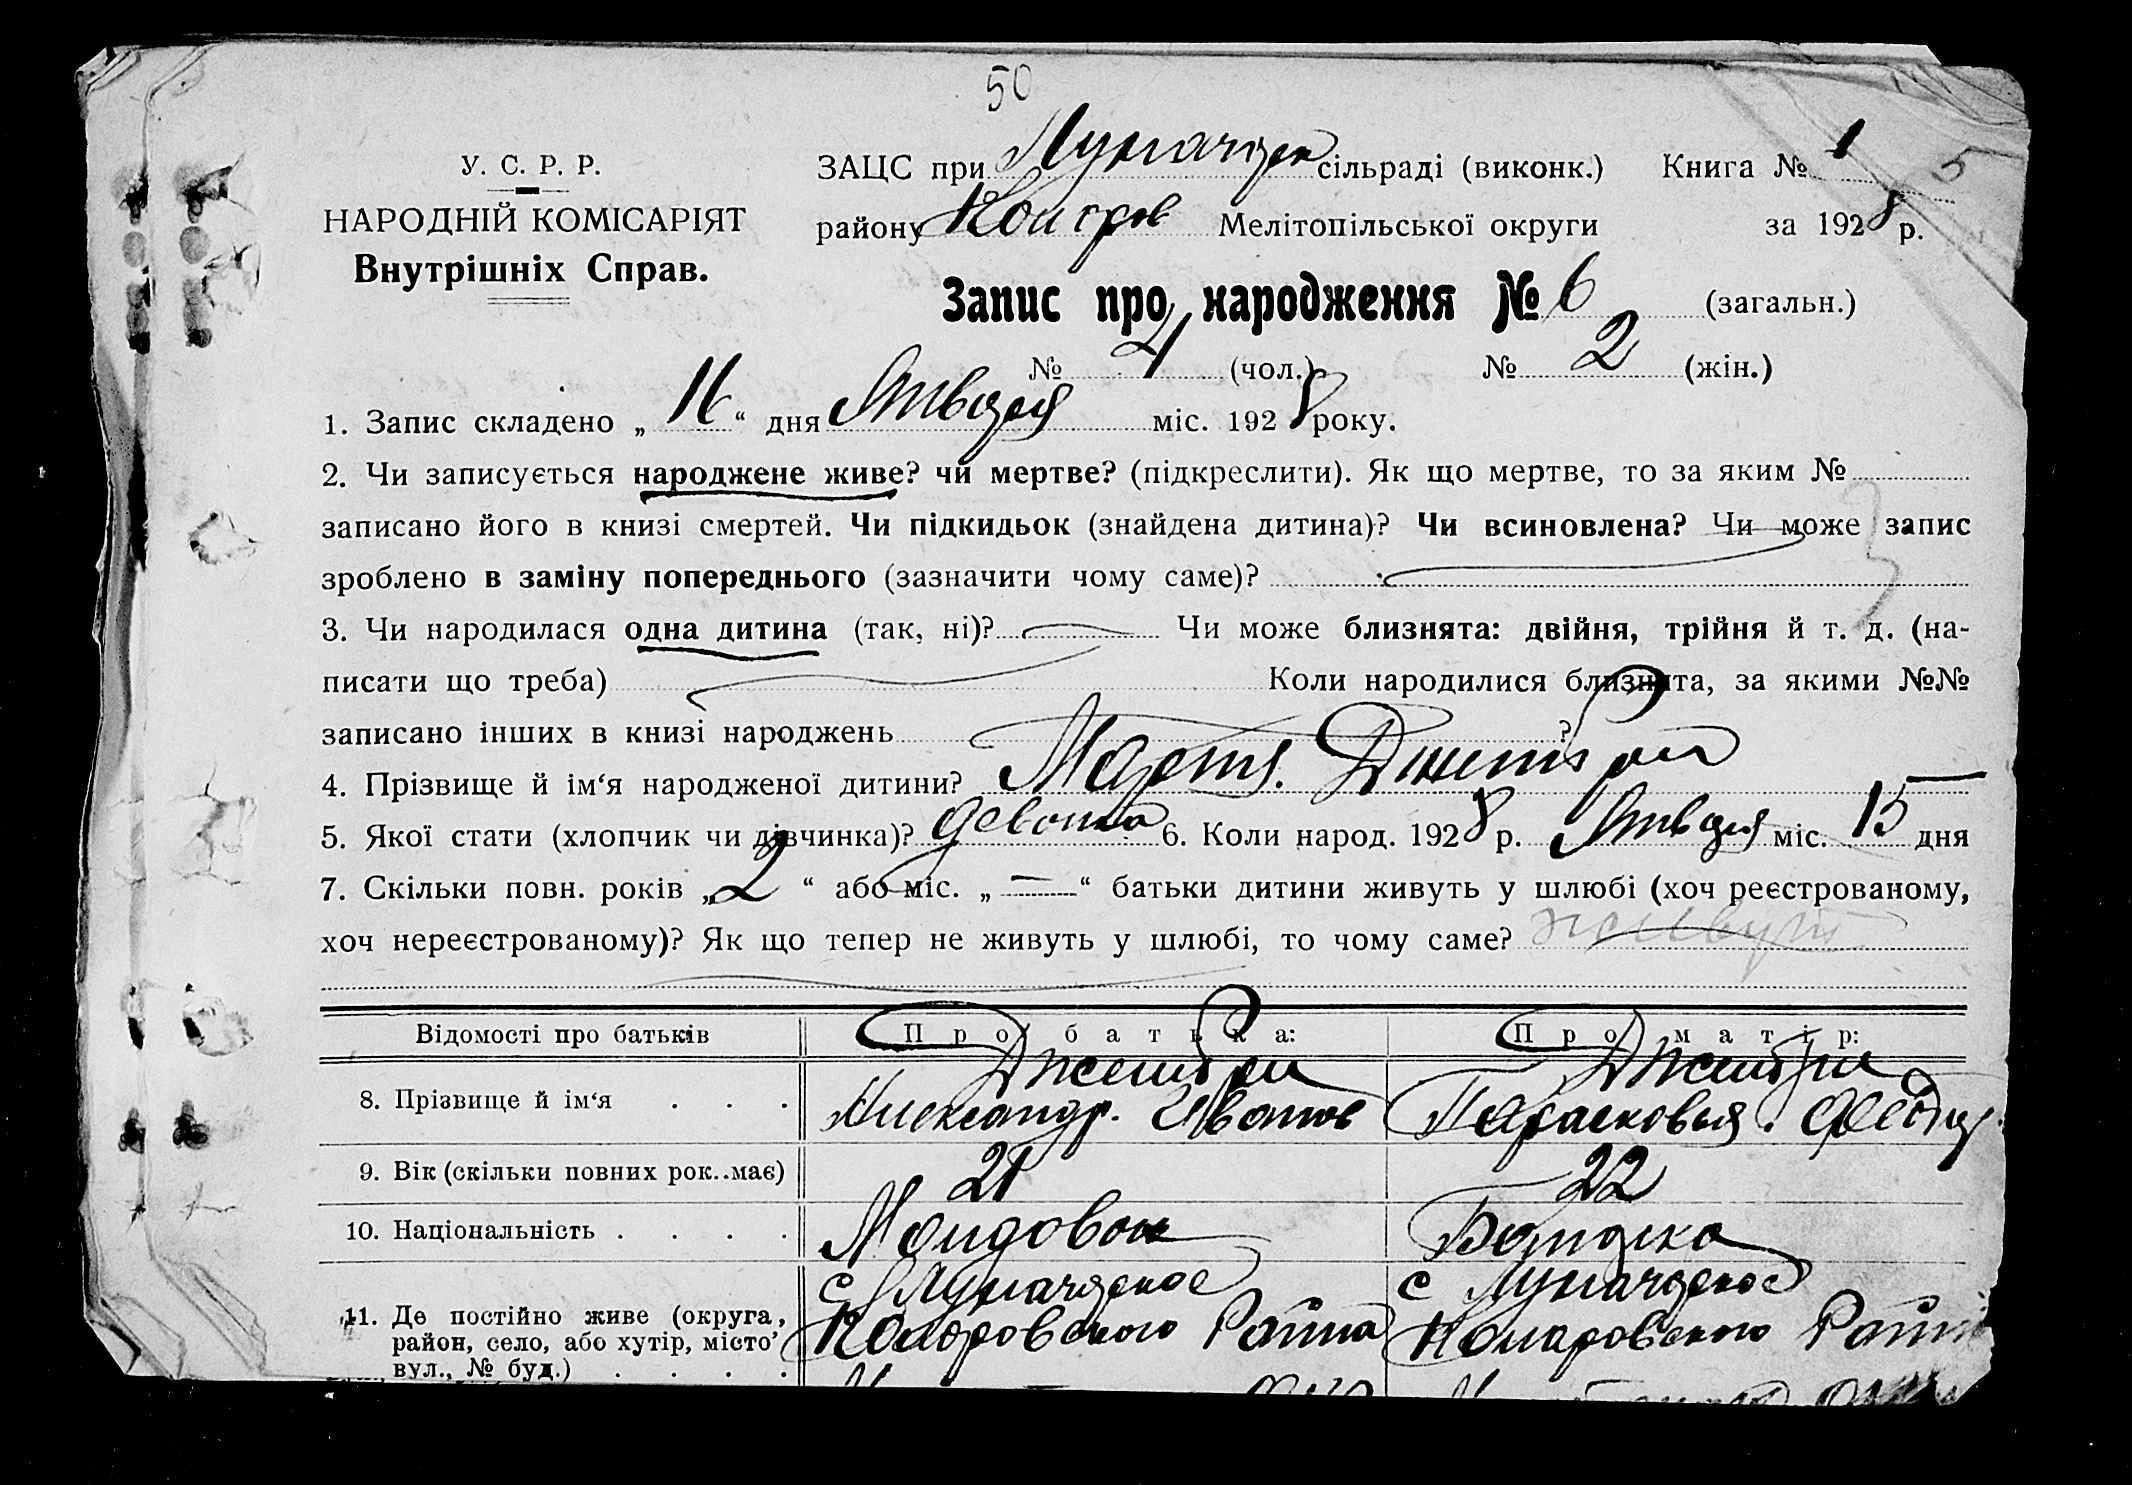 50
У. С. Р. Р.
НАРОДНІЙ КОМІСАРІЯТ
Внутрішніх Справ.
ЗАЦС при сільраді (виконк.) Книга № 1 5
району Мелітопільської округи за 1928 р.
Запис про народження № 6 (загальн.)
№ 4 (чол.) № 2 (жін.)
1. Запис складено „ 16 “ дня Января міс. 1928 року.
2. Чи записується народжене живе? чи мертве? (підкреслити). Як що мертве, то за яким №
записано його в книзі смертей. Чи підкидьок (знайдена дитина)? Чи всиновлена? Чи може запис
зроблено в заміну попереднього (зазначити чому саме)?
3. Чи народилася одна дитина (так, ні)? Чи може близнята: двійня, трійня й т. д. (на-
писати що треба) Коли народилися близнята, за якими №№
записано інших в книзі народжень ?
4. Прізвище й ім‘я народженої дитини?
5. Якої стати (хлопчик чи дівчинка)? девочка 6. Коли народ. 1928 р. Января міс. 15 дня
7. Скільки повн. років „ 2 “ або міс. „ — “ батьки дитини живуть у шлюбі (хоч реєстрованому,
хоч нереєстрованому)? Як що тепер не живуть у шлюбі, то чому саме? живут
Відомості про батьків Про батька: Про матір:
8. Прізвище й ім‘я . . . Александр. Иванов Парасковья. Федор.
9. Вік (скільки повних рок. має) 21 22
10. Національність . . . . Молдован Болгарка
11. Де постійно живе (округа, с с
район, село, або хутір, місто’
вул., № буд.) . . . .